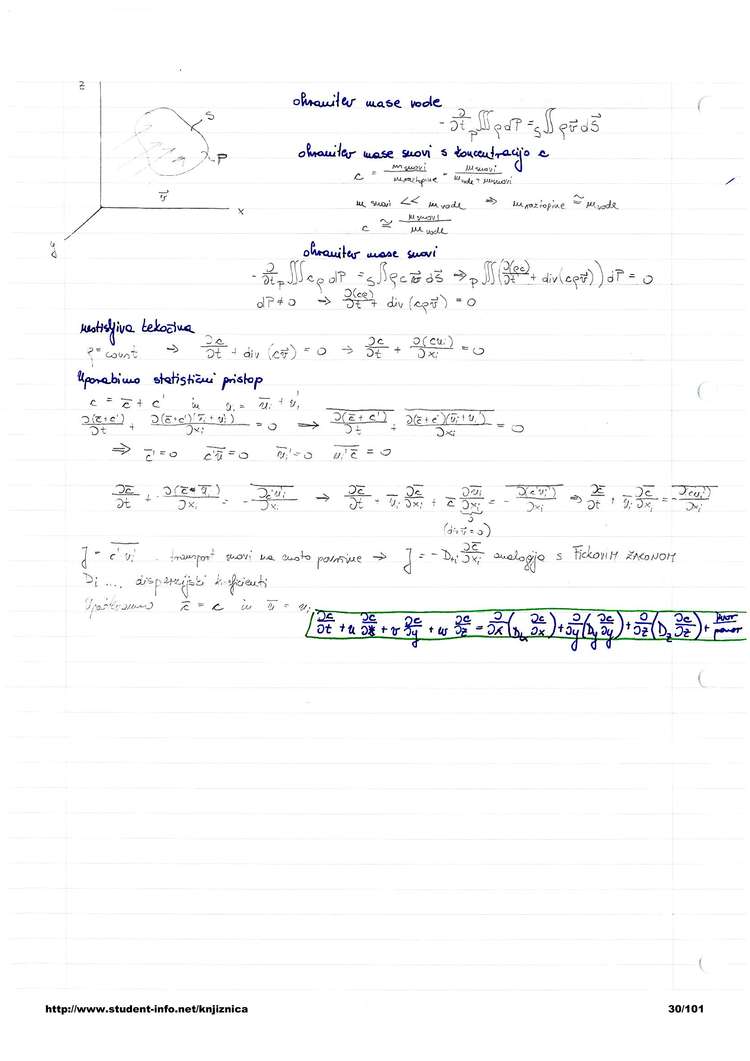 z
S
P
v⃗
x
y
ohranitev mase vode
- ∂/∂t _P∭ρdP = _S∬ρv⃗dS⃗
ohranitev mase snovi s koncentracijo c
c = m snovi / m raztopine = m snovi / m vode + m snovi
m snovi << m vode ⇒ m raztopine ≅ m vode
c ≅ m snovi / m vode
ohranitev mase snovi
- ∂/∂t _P∭cρdP = _S∬ρcv⃗dS⃗ ⇒ _P∭(∂(ρc)/∂t + div(cρv⃗))dP = 0
dP ≠ 0 → ∂(cρ)/∂t + div(cρv⃗) = 0
nestisljiva tekočina
ρ = const → ∂c/∂t + div(cv⃗) = 0 → ∂c/∂t + ∂(cu_i)/∂x_i = 0
Uporabimo statistični pristop
c = c̅ + c' in u_i = u̅_i + u_i'
∂(c̅+c')/∂t + ∂(c̅+c')(u̅_i+u_i')/∂x_i = 0 ⇒ ∂(c̅+c')/∂t + ∂(c̅+c')(u̅_i+u_i')/∂x_i = 0
⇒ c̅' = 0 c'u̅ = 0 u̅_i' = 0 u_i'c̅ = 0
∂c̅/∂t + ∂(c̅ u̅_i)/∂x_i = - ∂c'u_i'/∂x_i → ∂c̅/∂t + u̅_i ∂c̅/∂x_i + c̅ ∂u̅_i/∂x_i = - ∂(c'u_i')/∂x_i ⇒ ∂c̅/∂t + u̅_i ∂c̅/∂x_i = - ∂(c'u_i')/∂x_i
0
(div v⃗ = 0)
J = c'u_i' ... transport snovi na enoto površine → J = -D_i ∂c̅/∂x_i analogija s Fickovim zakonom
D_i .... disperzijski koeficienti
Upoštevamo c̅ = c in u̅ = u_i
∂c/∂t + u ∂c/∂x + v ∂c/∂y + w ∂c/∂z = ∂/∂x (D_x ∂c/∂x) + ∂/∂y (D_y ∂c/∂y) + ∂/∂z (D_z ∂c/∂z) + izvor/ponor
http://www.student-info.net/knjiznica 30/101